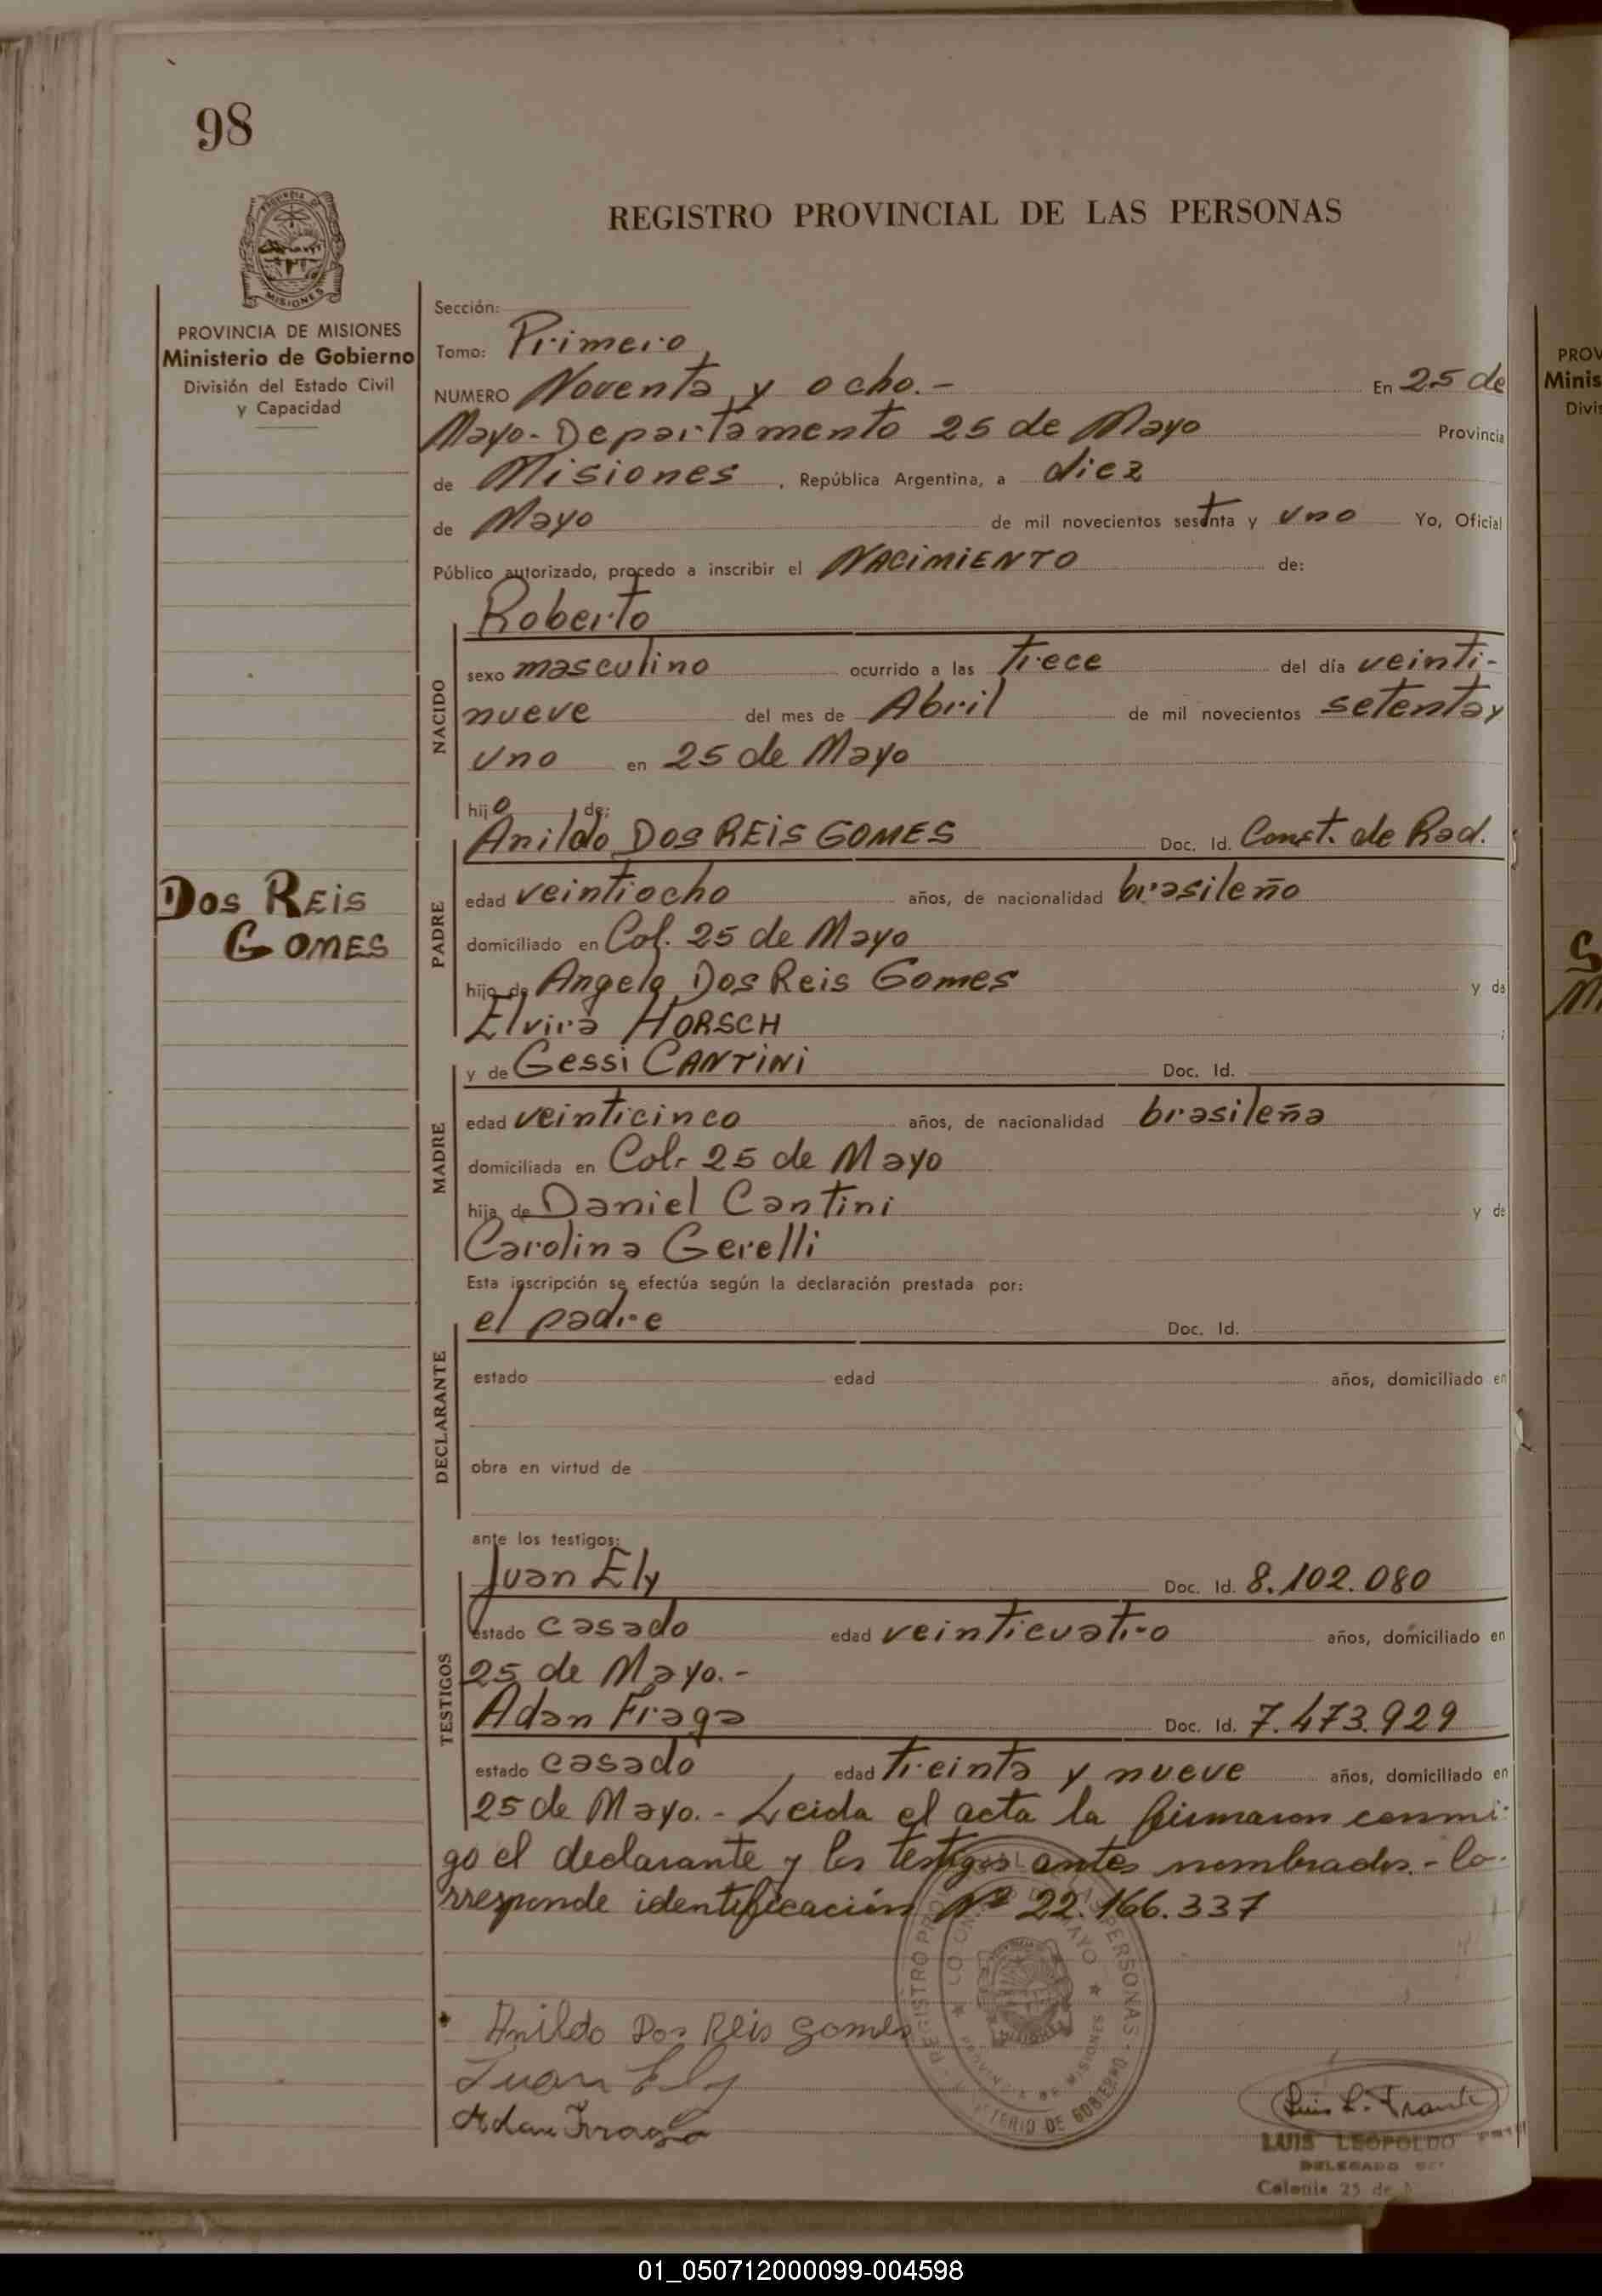 98
REGISTRO PROVINCIAL DE LAS PERSONAS
PROVINCIA DE
MISIONES
PROVINCIA DE MISIONES
Ministerio de Gobierno
División del Estado Civil
y Capacidad
Sección:
Tomo: Primero
NUMERO Noventa y ocho.- En 25 de
Mayo-Departamento 25 de Mayo Provincia
de Misiones, República Argentina, a diez
de Mayo de mil novecientos sestnta y uno Yo, Oficial
Público autorizado, procedo a inscribir el NACIMIENTO de:
NACIDO
Roberto
sexo masculino ocurrido a las trece del día veinti-
nueve del mes de Abril de mil novecientos setenta y
uno en 25 de Mayo
hijo de:
PADRE
Anildo DOS REIS GOMES Doc. Id. Const. de Rad.
edad veintiocho años, de nacionalidad brasileño
domiciliado en Col. 25 de Mayo
hijo de Angelo Dos Reis Gomes y de
Elvira HORSCH ;
Dos REIS
GOMES
MADRE
y de Gessi CANTINI Doc. Id.
edad veinticinco años, de nacionalidad brasileña
domiciliada en Col. 25 de Mayo
hija de Daniel Cantini y de
Carolina Gerelli
Esta inscripción se efectúa según la declaración prestada por:
DECLARANTE
el padre Doc. Id.
estado edad años, domiciliado en
obra en virtud de
ante los testigos:
TESTIGOS
Juan Ely Doc. Id. 8.102.080
estado casado edad veinticuatro años, domiciliado en
25 de Mayo.-
Adan Fraga Doc. Id. 7.473.929
estado casado edad treinta y nueve años, domiciliado en
25 de Mayo.- Leida el acta la firmaron conmi-
go el declarante y los testigos antes nombrados.- Co-
rresponde identificación Nº 22.166.337
Anildo Dos Reis Gomes
Juan Ely
Adan Fraga
PERSONAS
MINISTERIO DE GOBIERNO
PROVINCIA DE MISIONES
Luis L.
LUIS LEOPOLDO
DELEGADO
Colonia 25 de
PROV
Minis
Divis
01_050712000099-004598